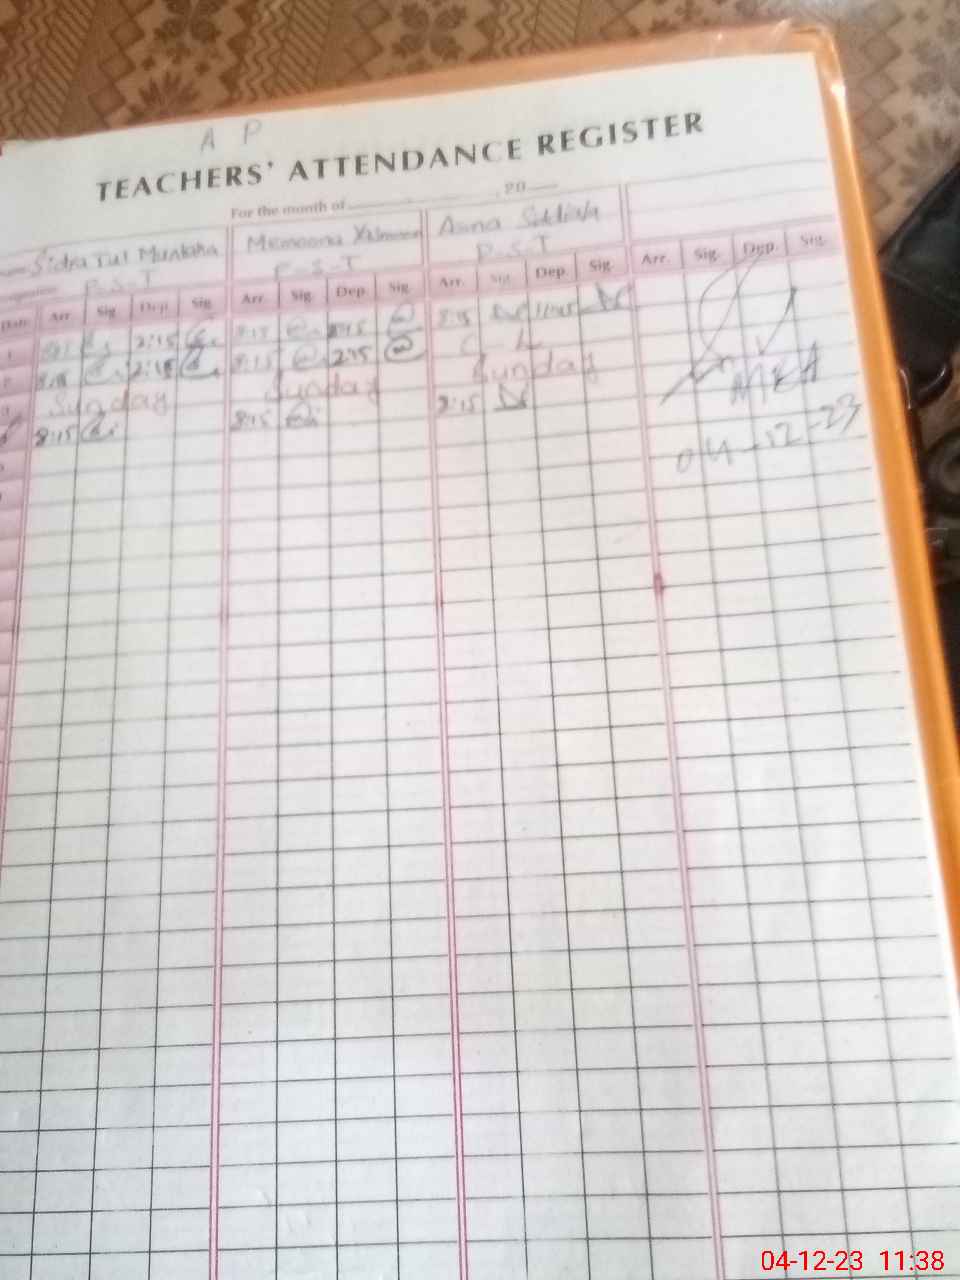 A P
TEACHERS' ATTENDANCE REGISTER
For the month of ________ , 20___
Sidra Tul Muntaha Memoona Asma
P-S-T P-S-T P-S-T
Date Arr. Sig. Dep. Sig. Arr. Sig. Dep. Sig. Arr. Sig. Dep. Sig. Arr. Sig. Dep. Sig.
1 2:15 8:15 8:15 11:45
2 8:15 2:15 8:15 2:15 C L
3 Sunday Sunday Sunday
8:15 8:15 8:15
MEA
04-12-23
04-12-23 11:38